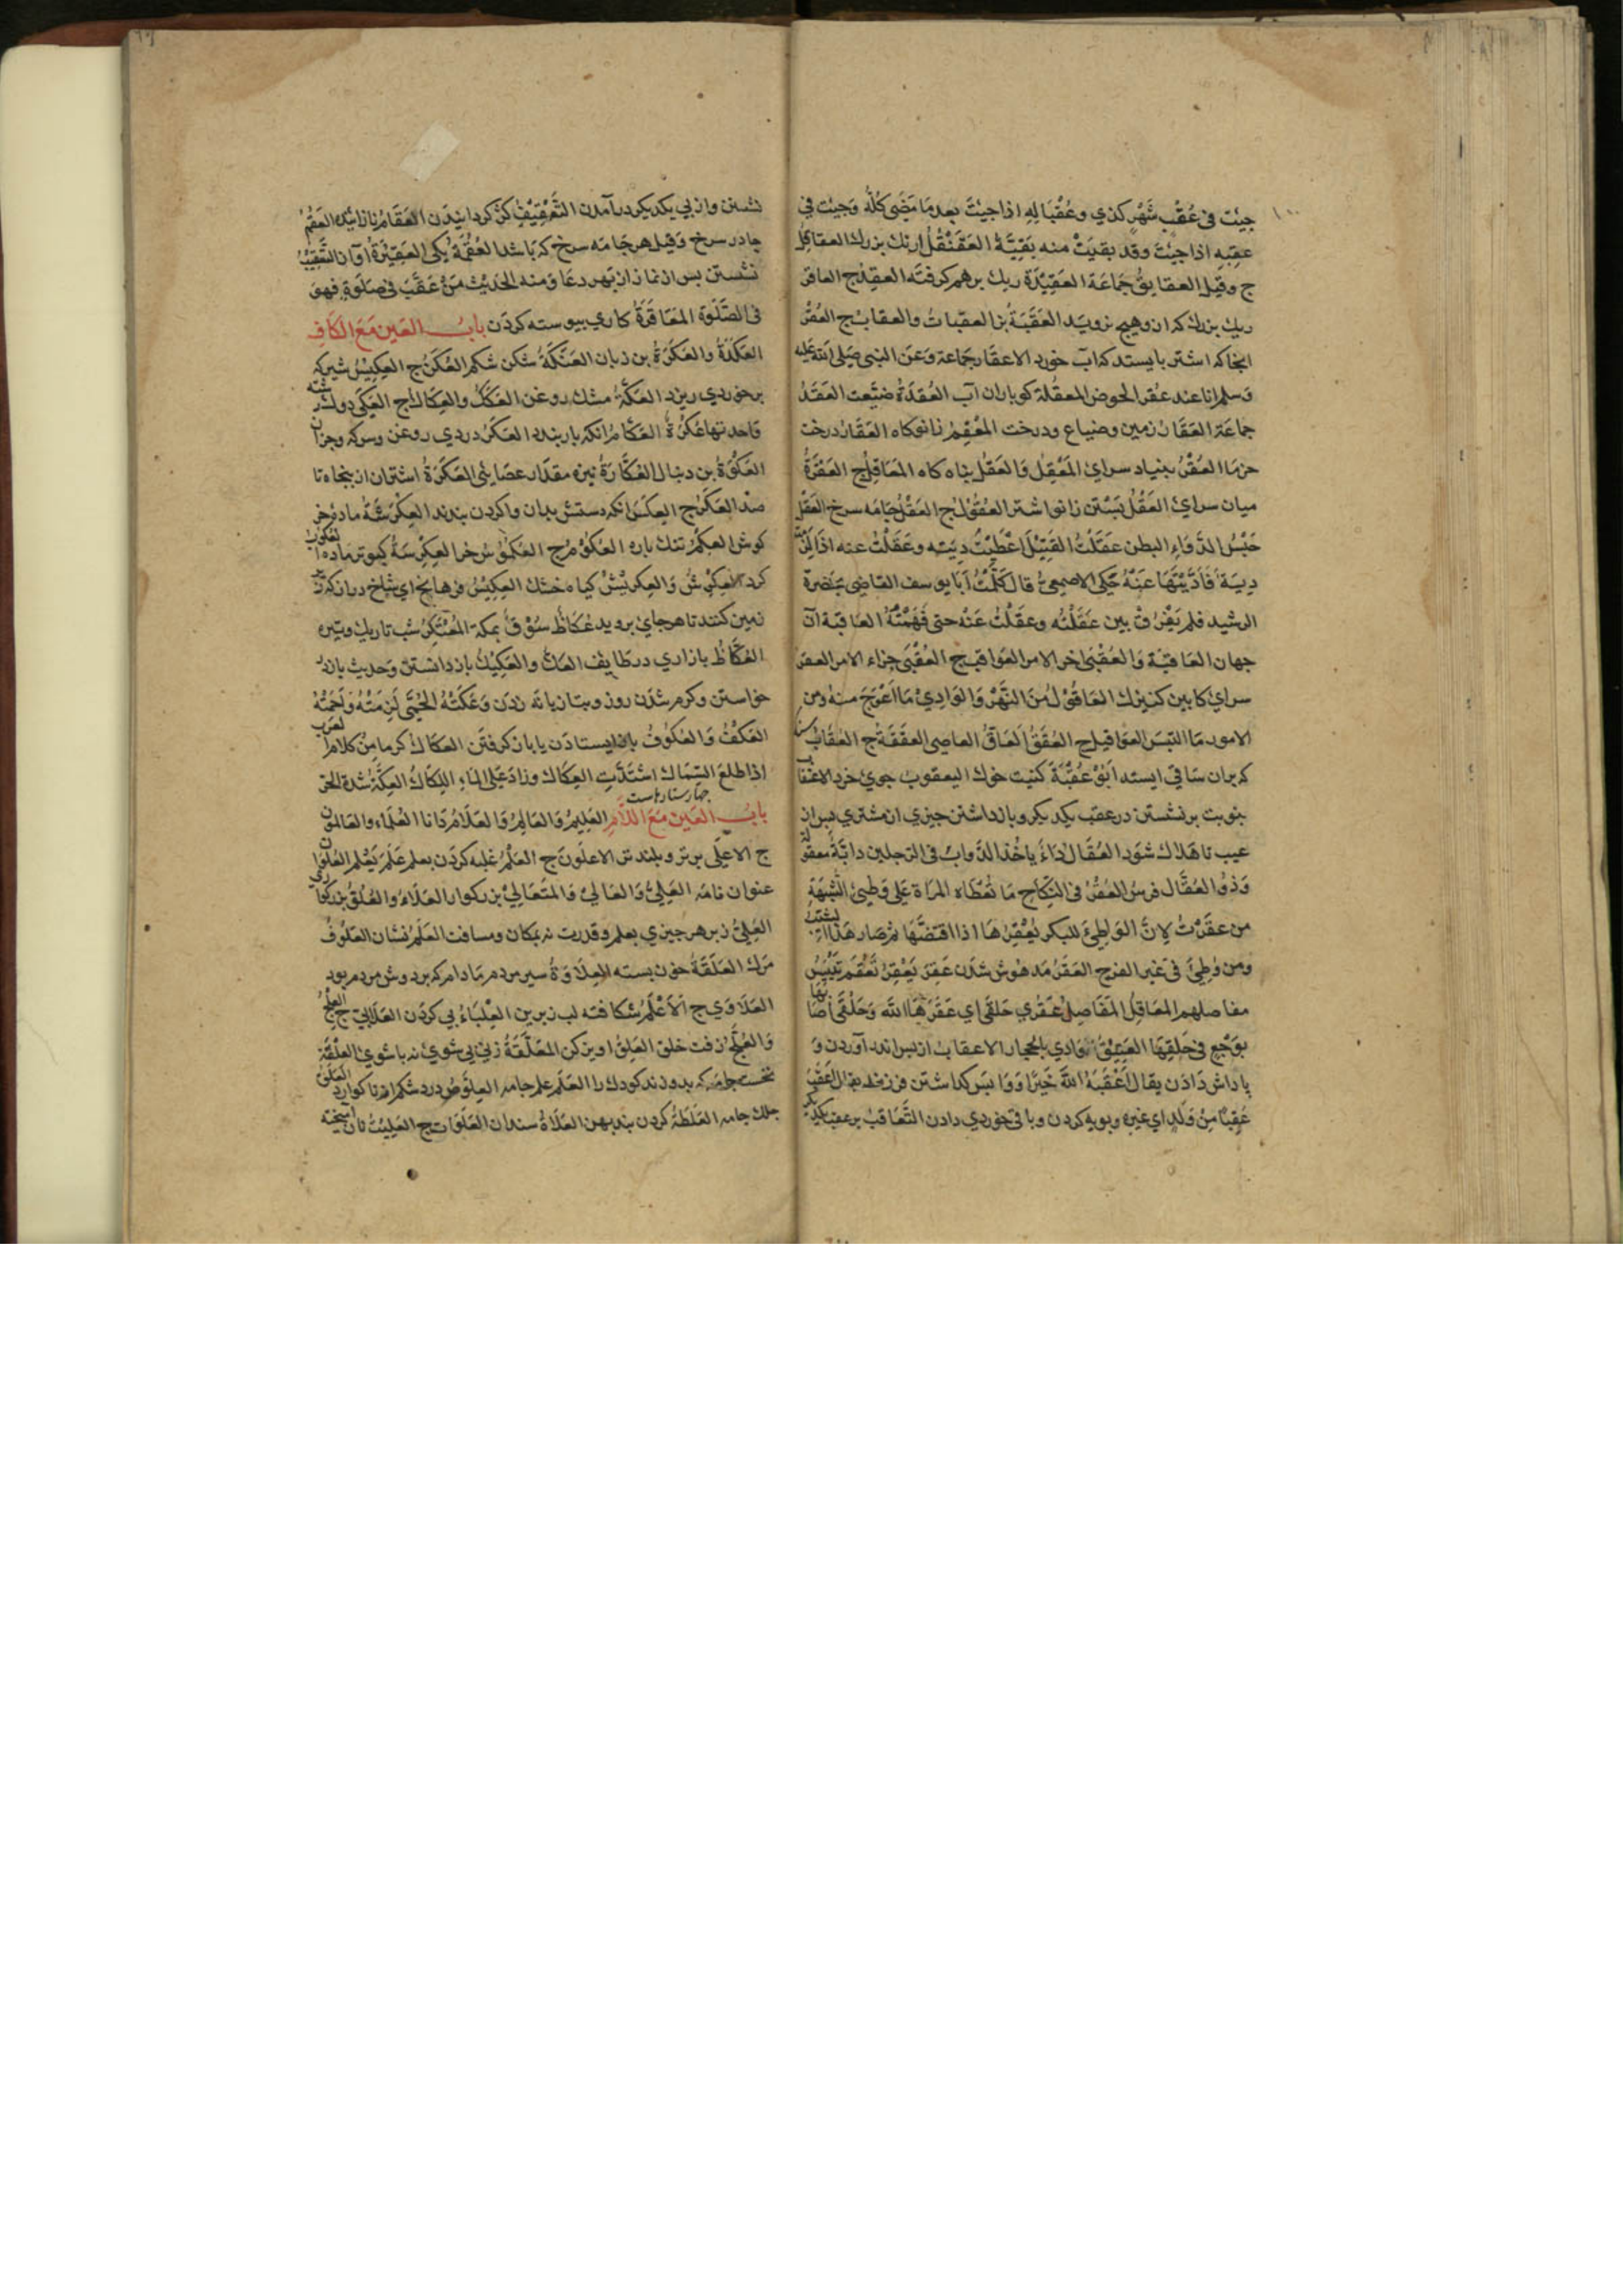 جيئت فى عُقْبِ شَهْرِ كذي وعُقْبَا لِهِ اذا جيئتَ بعد مَا مَضَى كلّه وَجيئت في
عقِبهِ اذا جيئتَ وقد بقيَتْ منه بَقيَّة العَقَنْقُلُ ارنك بزرك العقاقل
ج وقيل العقايقُ جَمَاعَة العَقِيْدَة ريك برهم كرفته العقِدُ ج العاقر
ريك بزرك كه ازو هيچ نرويَد العَقَبَةُ بژ العقبات والعقابُ ج العُقرُ
انجا كه اشتر بايستد كه آب خورد الاعقار جَمَاعة وَعَن النبى صَلى الله عليه
وَسلم انا عند عُقر الحوض المعقلة كو باران آب العُقدَةُ ضيَعت العُقَدُ
جماعَة العَقَار زمين وضياع ودرخت المَعْقِم زانوكاه العَقار درخت
خرما العُقْرُ بنياد سراى المَعْقِل وَالعَقْل پناه كاه المَعَاقِل ج العَقْرَةُ
ميان سراى العَقْلُ بَسْتن زانو اشتر العُقُوْل ج العَقْل جَامَه سرخ العَقْل
حَبْسُ الدَّوَاءِ البطن عَقَلْتُ القَتِيْلَ اَعْطَيْتُ دِيَتِه وعَقَلْتُ عنه اذا لَزِمَتْه
دِيَة فَاَدَّيْتَهَا عَنْهُ حَكى الاصمعىُّ قال كَلَّمْتُ اَبَا يوسف القاضى بحَضرة
الرشيد فلم يَفْرُق بين عَقَلْتُه وعقَلْتُ عَنْه حتى فَهَّمْتُهُ العاقبَة آن
جهان العَاقبَة وَالعُقْبَى اخر الامر العواقب ج العُقْبَى جزاء الامر العقر
سراى كابين كنيزك العَاقُوْل مِنَ النَّهْرِ وَالوَادِيْ مَا اَعْوَجَ منه ومن
الامور مَا التبسَ العواقيل ج العُقَقُ العَاقُ العاصى العقَقَة ج العُقَابُ
كه بران سَاقى ايستد اَبُوْ عُقْبَة كنيت خوك اليعقوب جوى خرد الاعْقَابُ
بنوبت برنشستن در عقب يكديكر وبازداشتن چيزى از مشترى پس از
عيب تا هَلاك شوَد العُقَال دَاءٌ ياخُذ الدّوابّ فى الرّجلين دابَّة معقولة
وَذو العُقَّال فرس العُقْرُ فى النّكاح مَا تُعْطَاه المراة عَلى وَطِيءِ الشُّبهَةِ
من عقَرْتُ لانَّ الوَاطِئَ للبكر يُعْقِرُهَا اذا اقتضَّها ثم صَار هَذا لِلثَيِّبِ
ومن وُطِئَ فى غير الفرج العَقَر مَدهوش شدَن عَقِرَ يَعْقَرُ تَعْقَمُ تَيْبَسُ
مفاصلهم المعَاقِل المَفَاصِل عَقْرى حَلقى اى عَقَرَهَا الله وَحَلقَى اصَابَهَا
بوَجْع فى حَلقِهَا العَقِيْقُ وادى بالحجاز الاعقاب از پس اندر آوردن وَ
پاداش دَادَن يقال اَعْقَبَهُ اللّه خَيرًا وَ وَاپسَ كذاشتن فرزند يقال اَعْقَبَ
عَقِبًا مِنْ وَلَدٍ اى غيره وبويه كردن وباقى خوردى دادن التَّعَاقب بر عقب يكديكر
نشستن واز پى يكديكر درآمدن التَّعْقِيْفُ كژ كردانيدَن العَقَامُ نازاينده العَقْمُ
چادر سرخ وَقيل هر جَامَه سرخ كه باشد العُقْمَة يكى العَقِيْرَةُ آواز التَّعْقِيْبُ
نشستن پس از نماز از بَهر دعَا وَمنه الحَديث مَنْ عَقَّبَ فى صَلوةٍ فهو
فى الصَّلوة المعَاقرَةُ كارى پيوسته كردن بابُ العَين مَعَ الكَافِ
العكَدَةُ والعَكَرَةُ بن زبان العُكْنَةُ شكن شكم العُكَنُ ج العِكِيْسُ شير كه
بر خوردى ريزد العُكَّةُ مشك روغن العُكَكُ والعِكَاك ج العَكَى دوك رشته
وَاحدتها عُكْرَةُ العَكَّامُ انكه بار بندد العَكَرُ دردى روغن وسركه وجزان
العَكْوَةُ بن دنبال العُكَّازَةُ نيزه مقدار عصَائى العَكَرَةُ اشتران از پنجاه تا
صد العَكَرُ ج العِكَسُ انكه دستش بدان واكردن بندند العِكْرشَةُ ماده خر
كوش العِكْمُ تنك باره العُكُوْمُ ج العُكْمُوْسُ خر العِكْرمَةُ كبوتر ماده العكوب
كرد العِكْرِشُ وَالعِكريْشُ كياه خشك العِكِيْسُ هر بيخ اى شاخ درازكه در
زمين كنند تا هر جاى برويد عُكَاظُ سُوْقٌ بمكة المُعْتَكِرُ شب تاريك وتيره
العُكَّاظُ بازارى در طايف العَكُّ والعَكِيْكُ بازدانستن وَحديث بازدر
خواستن وكرم شدن روز وبتازيانه زدن وَعَكَّتْهُ الحُمَّى لَزِمَتْهُ وَاَحْمَتْهُ
العَكْفُ وَالعُكُوْفُ باز ايستادَن يا باز كرفتن العكَاك كرما مِنْ كلام العرب
اذا طلعَ السِّمَاك اشْتَدَّتِ العِكَاك وزادَ عَلى المَاءِ اللِّكَاك العِكَّةُ شدة الحر
چهار ستاره است
بابُ العَين مَعَ اللَّامِ العَليمُ وَالعَالِمُ وَالعَلّامُ دَانا العُلمَاء والعَالمون
ج الاعلَى برتر وبلندتر الاعلَون ج العَلْمُ غلبه كردَن بعلم عَلَمَ يَعْلم العُلْوَانُ
عنوان نامَه العَلِيُّ وَالعَالِيْ وَالمتَعَالِيْ بزركوار العَلاءُ والعُلُوُّ بزركوارى
العَلِيُّ زبر هر چيزى بعلم وقدرت نه بمكان ومسافت العَلَمُ نشان العَلُوفُ
مَرك العَلَقَةُ خون بسته العِلاوَةُ سير مردم مادام كه بر دوش مردم بود
العَلاوَى ج الاَعْلَمُ شكافته لب زبرين العِلْبَاءُ پى كردَن العَلابِيُّ ج العِلجُ
وَالعُلجُ زفت خلق العَلِقُ اويزكن المعَلَّقَةُ زنى بى شوى نه با شوى العِلْقَةُ
نخست جامَه كه بدوزند كودك را العَلَم علم جامه العِلَّوْصُ درد شكم از ناكوارد العَلَقُ
جلك جامه العَلَطَةُ كردن بند پهن العَلاةُ سندان العَلَوَات ج العَلِيْثُ نان آميخته